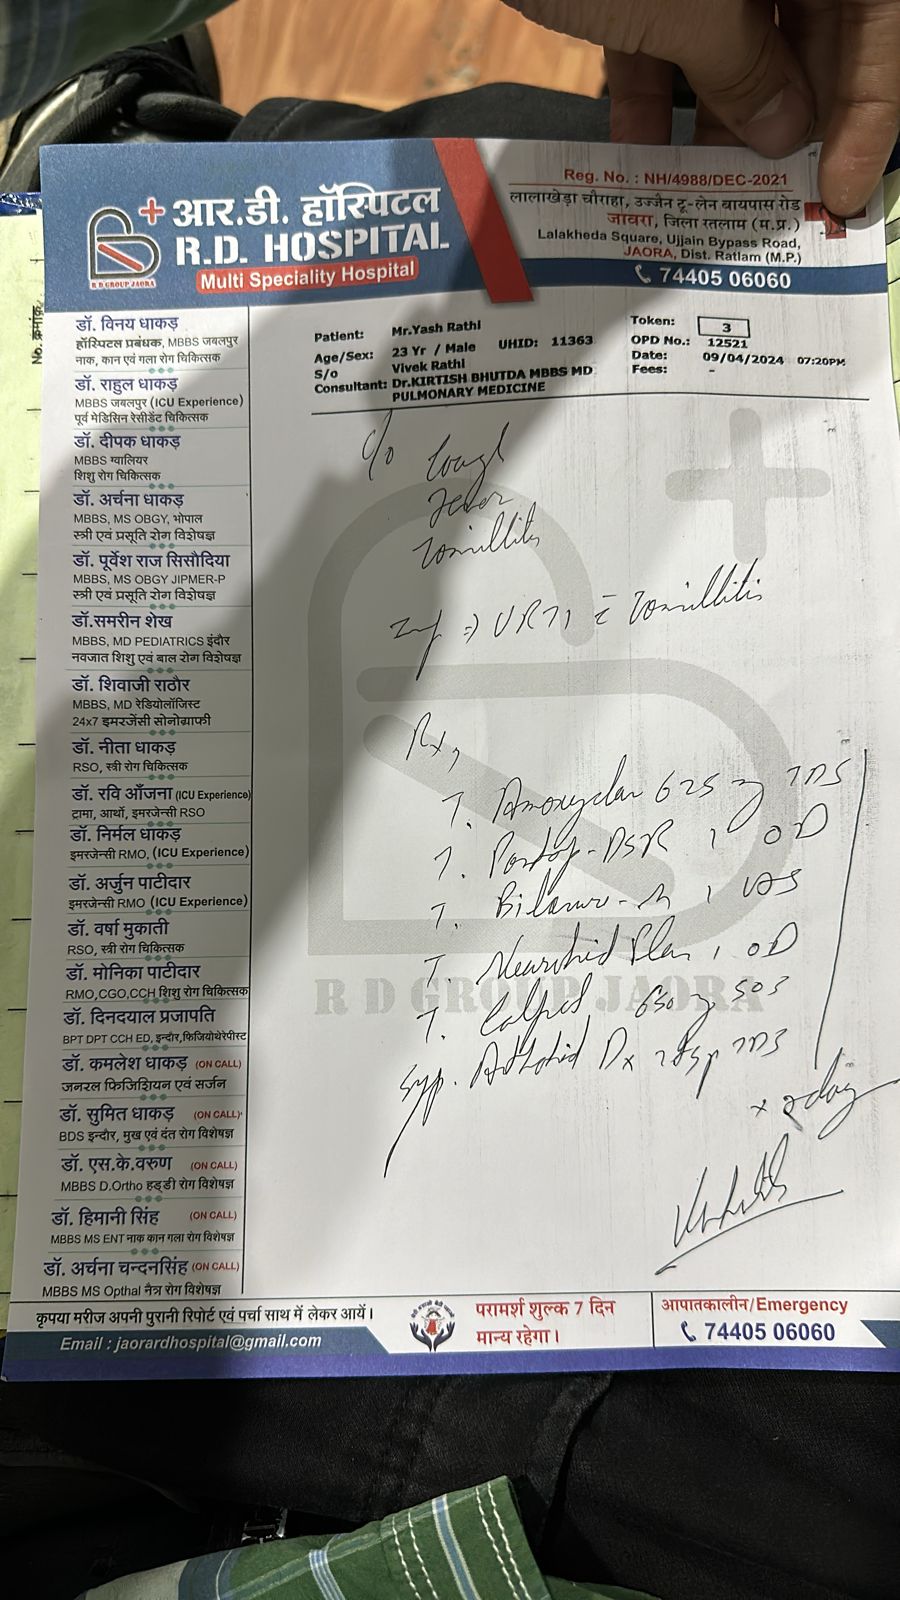 आर.डी. हॉस्पिटल
R.D. HOSPITAL
Multi Speciality Hospital
R D GROUP JAORA
Reg. No. : NH/4988/DEC-2021
लालाखेड़ा चौराहा, उज्जैन टू-लेन बायपास रोड
जावरा, जिला रतलाम (म.प्र.)
Lalakheda Square, Ujjain Bypass Road,
JAORA, Dist. Ratlam (M.P.)
74405 06060
No. क्रमांक
डॉ. विनय धाकड़
हॉस्पिटल प्रबंधक, MBBS जबलपुर
नाक, कान एवं गला रोग चिकित्सक
डॉ. राहुल धाकड़
MBBS जबलपुर (ICU Experience)
पूर्व मेडिसिन रेसीडेंट चिकित्सक
डॉ. दीपक धाकड़
MBBS ग्वालियर
शिशु रोग चिकित्सक
डॉ. अर्चना धाकड़
MBBS, MS OBGY, भोपाल
स्त्री एवं प्रसूति रोग विशेषज्ञ
डॉ. पूर्वेश राज सिसौदिया
MBBS, MS OBGY JIPMER-P
स्त्री एवं प्रसूति रोग विशेषज्ञ
डॉ.समरीन शेख
MBBS, MD PEDIATRICS इंदौर
नवजात शिशु एवं बाल रोग विशेषज्ञ
डॉ. शिवाजी राठौर
MBBS, MD रेडियोलॉजिस्ट
24x7 इमरजेंसी सोनोग्राफी
डॉ. नीता धाकड़
RSO, स्त्री रोग चिकित्सक
डॉ. रवि आँजना (ICU Experience)
ट्रामा, आर्थो, इमरजेन्सी RSO
डॉ. निर्मल धाकड़
इमरजेन्सी RMO, (ICU Experience)
डॉ. अर्जुन पाटीदार
इमरजेन्सी RMO (ICU Experience)
डॉ. वर्षा मुकाती
RSO, स्त्री रोग चिकित्सक
डॉ. मोनिका पाटीदार
RMO,CGO,CCH शिशु रोग चिकित्सक
डॉ. दिनदयाल प्रजापति
BPT DPT CCH ED, इन्दौर,फिजियोथेरेपीस्ट
डॉ. कमलेश धाकड़ (ON CALL)
जनरल फिजिशियन एवं सर्जन
डॉ. सुमित धाकड़ (ON CALL)
BDS इन्दौर, मुख एवं दंत रोग विशेषज्ञ
डॉ. एस.के.वरुण (ON CALL)
MBBS D.Ortho हड्डी रोग विशेषज्ञ
डॉ. हिमानी सिंह (ON CALL)
MBBS MS ENT नाक कान गला रोग विशेषज्ञ
डॉ. अर्चना चन्दनसिंह (ON CALL)
MBBS MS Opthal नैत्र रोग विशेषज्ञ
Patient: Mr.Yash Rathi Token: 3
Age/Sex: 23 Yr / Male UHID: 11363 OPD No.: 12521
S/o Vivek Rathi Date: 09/04/2024 07:20PM
Consultant: Dr.KIRTISH BHUTDA MBBS MD Fees: -
PULMONARY MEDICINE
c/o Cough
Fever
Tonsillitis
Imp => URTI c̄ Tonsillitis
Rx,
T. Amoxyclav 625 mg TDS
T. Pantop-DSR 1 OD
T. 1
T. Plan 1 OD
T. Calpol 650 mg SOS
Syp. Dx 2tsp TDS
R D GROUP JAORA
कृपया मरीज अपनी पुरानी रिपोर्ट एवं पर्चा साथ में लेकर आयें।
Email : jaorardhospital@gmail.com
परामर्श शुल्क 7 दिन
मान्य रहेगा।
आपातकालीन/Emergency
74405 06060